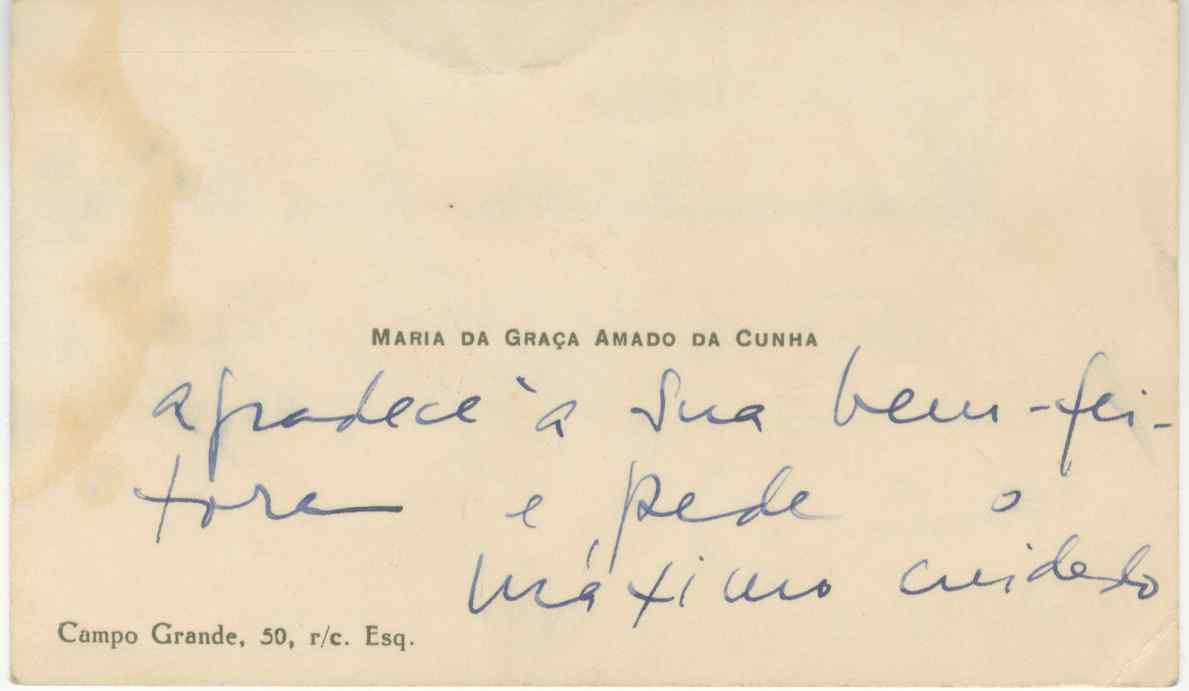 MARIA DA GRAÇA AMADO DA CUNHA
agradece à sua bem-fei-
tora e pede o
máximo cuidado
Campo Grande, 50, r/c. Esq.